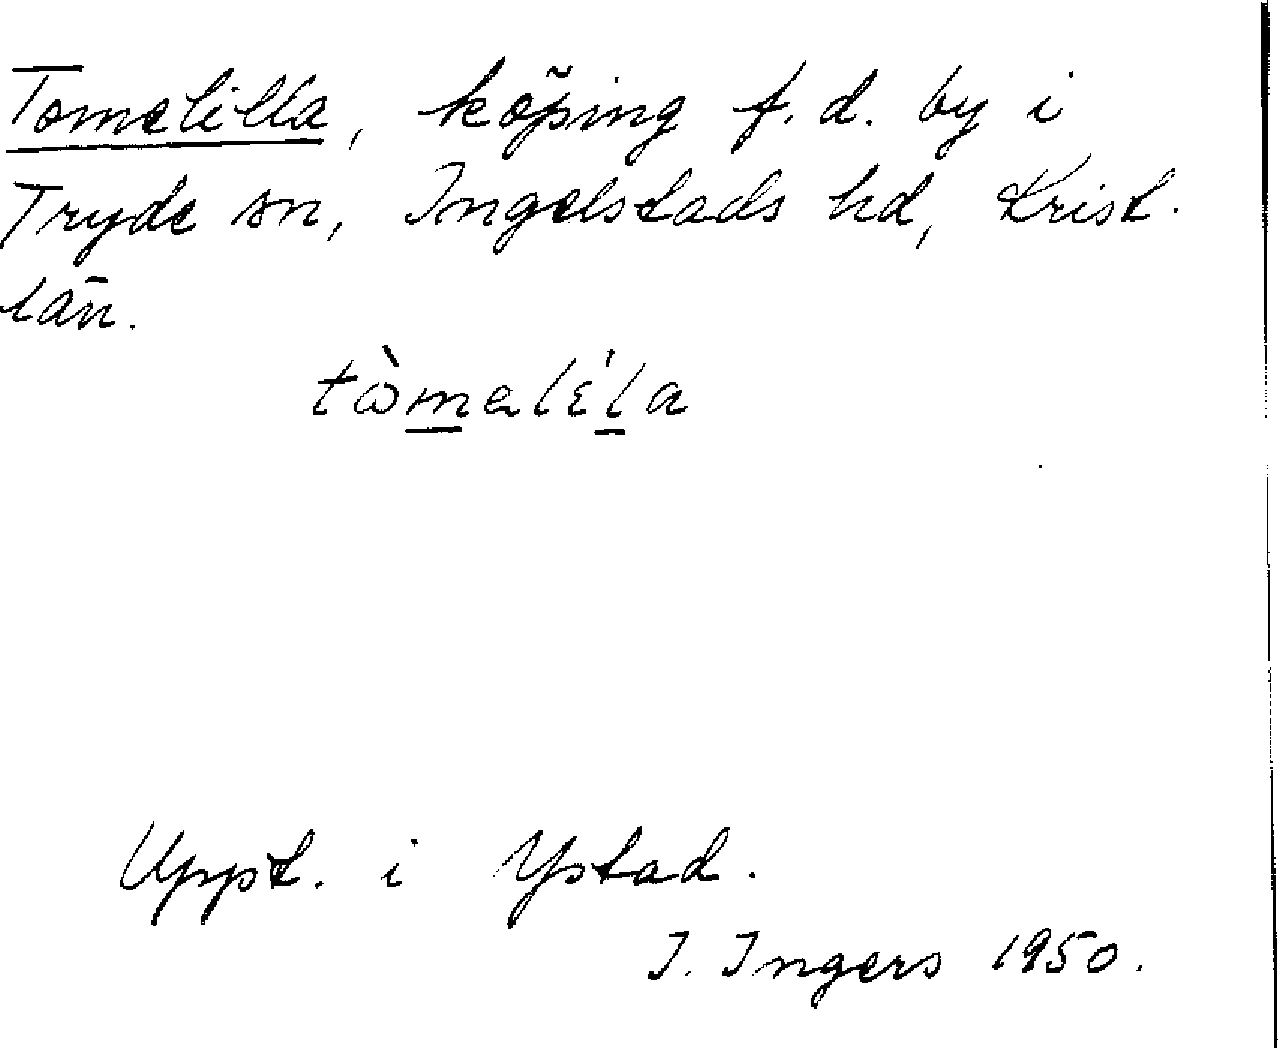 Tomelilla, köping f.d. by i
Tryde sn, Ingelstads hd, Krist.
län.
tὼm̲alɛ́l̲a
Uppt. i Ystad.
I. Ingers 1950.